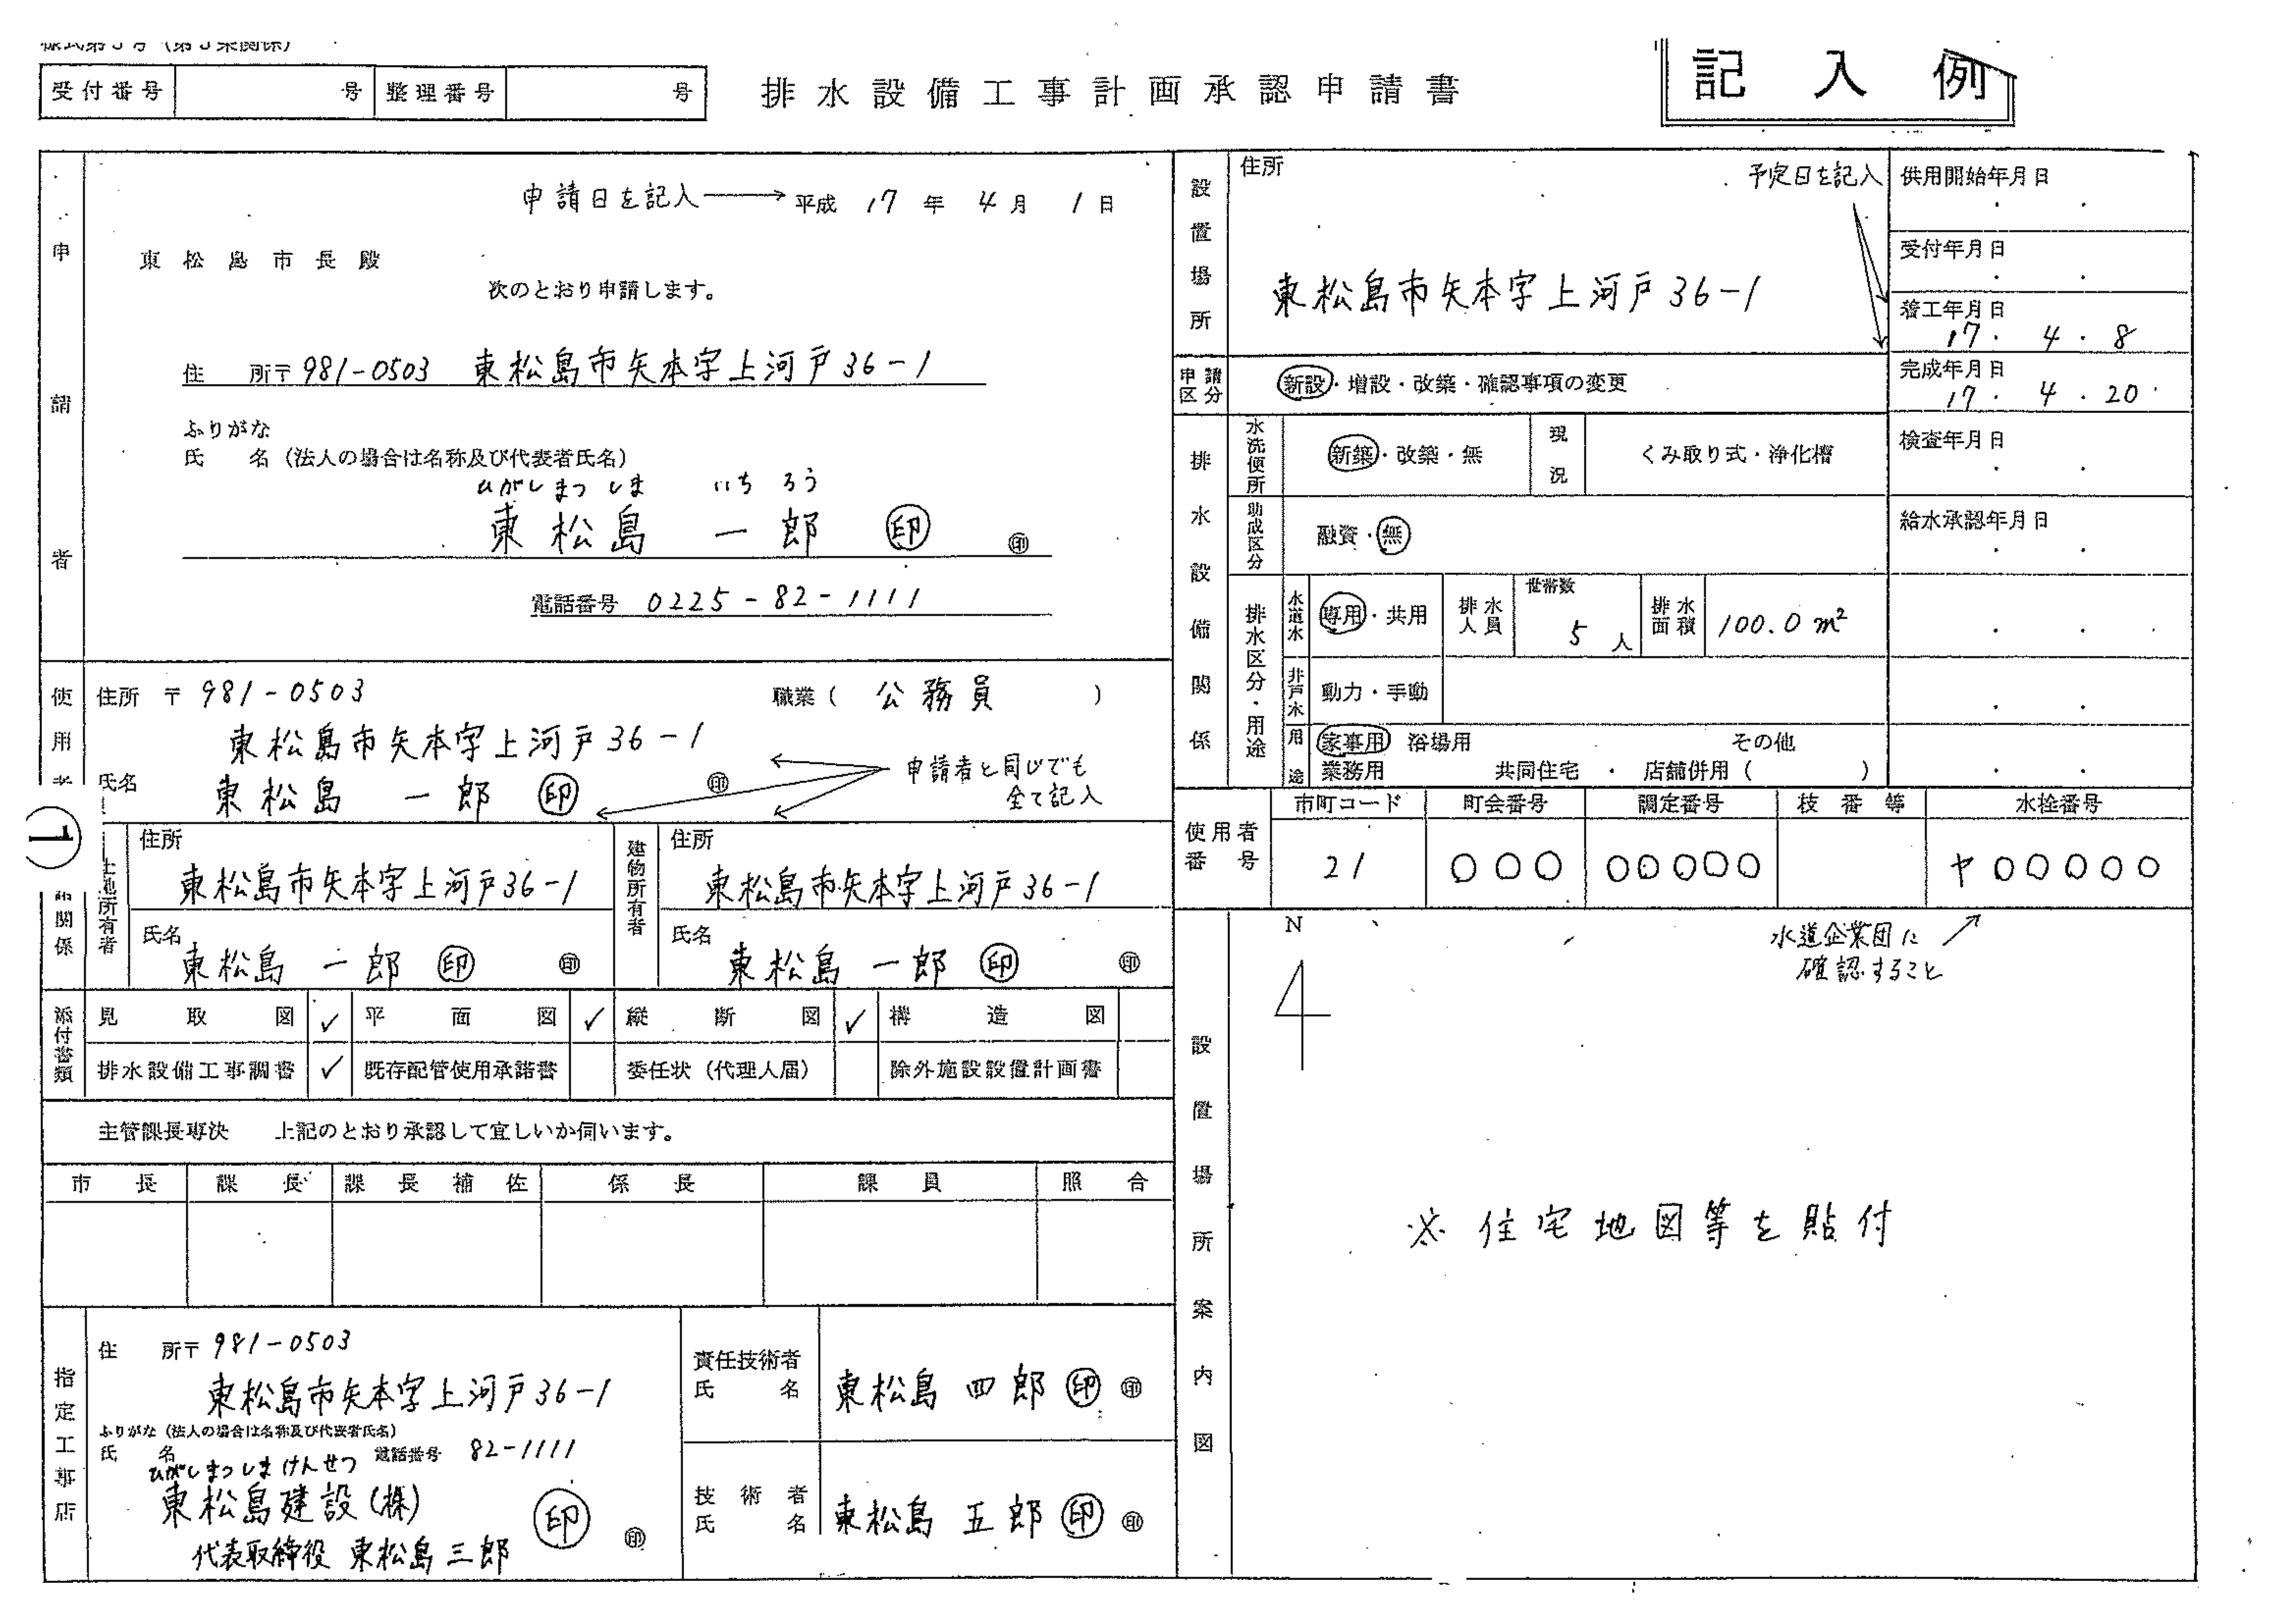 様式第5号（第5条関係）
受付番号 号 整理番号 号
排水設備工事計画承認申請書
記入例
申請者
申請日を記入 → 平成 17 年 4 月 1 日
東松島市長殿
次のとおり申請します。
住 所〒981-0503 東松島市矢本字上河戸36-1
ふりがな
氏 名（法人の場合は名称及び代表者氏名）
ひがしまつしま いちろう
東松島 一郎 ㊞ ㊞
電話番号 0225-82-1111
使用者
住所 〒 981-0503 職業（ 公務員 ）
東松島市矢本字上河戸36-1
氏名 東松島 一郎 ㊞ ㊞
申請者と同じでも
全て記入
1
関係
土地所有者
住所
東松島市矢本字上河戸36-1
氏名
東松島 一郎 ㊞ ㊞
建物所有者
住所
東松島市矢本字上河戸36-1
氏名
東松島 一郎 ㊞ ㊞
添付書類
見取図 ✓ 平面図 ✓ 縦断図 ✓ 構造図
排水設備工事調書 ✓ 既存配管使用承諾書 委任状（代理人届） 除外施設設置計画書
主管課長専決 上記のとおり承認して宜しいか伺います。
市長 課長 課長補佐 係長 課員 照合
指定工事店
住 所〒 981-0503
東松島市矢本字上河戸36-1
ふりがな（法人の場合は名称及び代表者氏名）
氏 名 電話番号 82-1111
ひがしまつしまけんせつ
東松島建設（株）
代表取締役 東松島三郎 ㊞ ㊞
責任技術者
氏 名
東松島 四郎 ㊞ ㊞
技術者
氏 名
東松島 五郎 ㊞ ㊞
設置場所
住所
東松島市矢本字上河戸36-1
予定日を記入
供用開始年月日
・ ・
受付年月日
・ ・
着工年月日
17・4・8
完成年月日
17・4・20
検査年月日
・ ・
給水承認年月日
・ ・
・ ・
・ ・
・ ・
申請区分
新設・増設・改築・確認事項の変更
排水設備関係
水洗便所 新築・改築・無 現況 くみ取り式・浄化槽
助成区分 融資・無
排水区分・用途
水道水 専用・共用 排水人員 世帯数 5人 排水面積 100.0㎡
井戸水 動力・手動
用途 家事用 浴場用 その他
業務用 共同住宅 ・ 店舗併用（ ）
使用者番号
市町コード 町会番号 調定番号 枝番等 水栓番号
21 ○○○ ○○○○○ ヤ○○○○○
水道企業団に
確認すること
設置場所案内図
N
※ 住宅地図等を貼付